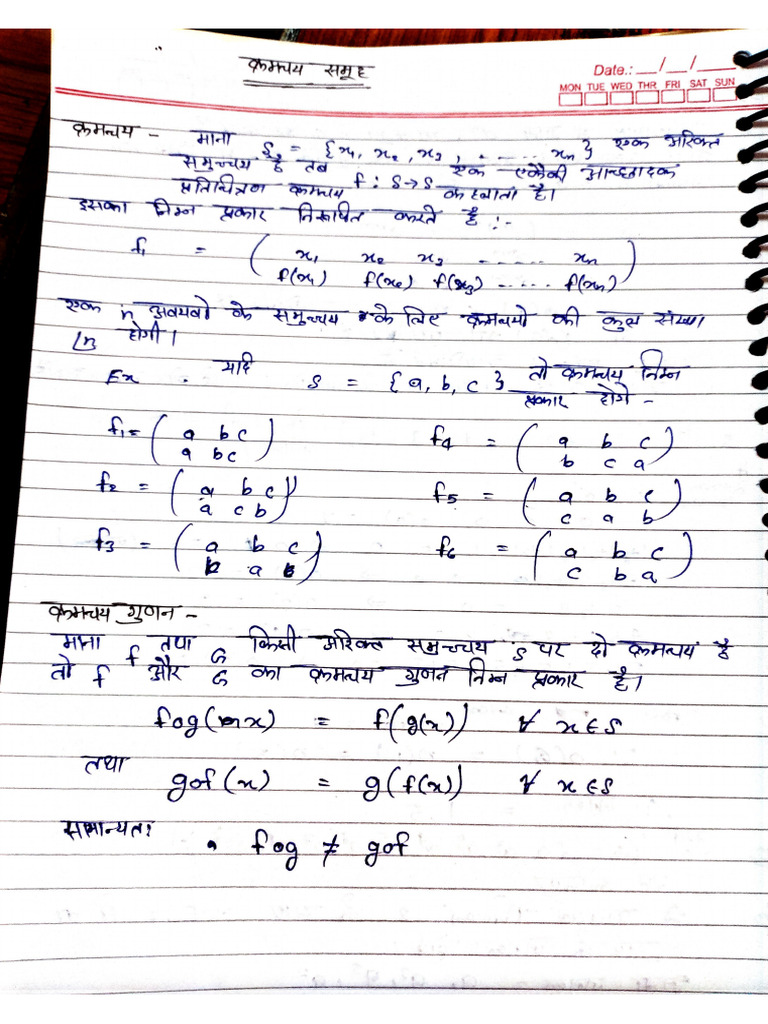 क्रमचय समूह
Date.: __/__/____
MON TUE WED THR FRI SAT SUN
क्रमचय - माना S = {x1, x2, x3, ........ xn} एक अरिक्त
समुच्चय है तब एक एकैकी आच्छादक
प्रतिचित्रण क्रमचय f : S → S कहलाता है।
इसका निम्न प्रकार निरूपित करते है :-
f1 = ( x1 x2 x3 ........ xn )
( f(x1) f(x2) f(x3) ...... f(xn) )
एक n अवयवो के समुच्चय के लिए क्रमचयो की कुल संख्या
∟n होगी।
Ex . यदि S = {a, b, c} तो क्रमचय निम्न
प्रकार होगे -
f1 = ( a b c ) f4 = ( a b c )
( a b c ) ( b c a )
f2 = ( a b c ) f5 = ( a b c )
( a c b ) ( c a b )
f3 = ( a b c ) f6 = ( a b c )
( b a c ) ( c b a )
क्रमचय गुणन -
माना f तथा G किसी अरिक्त समुच्चय S पर दो क्रमचय है
तो f और G का क्रमचय गुणन निम्न प्रकार है।
fog(x) = f(g(x)) ∀ x ∈ S
तथा gof(x) = g(f(x)) ∀ x ∈ S
सामान्यतः fog ≠ gof